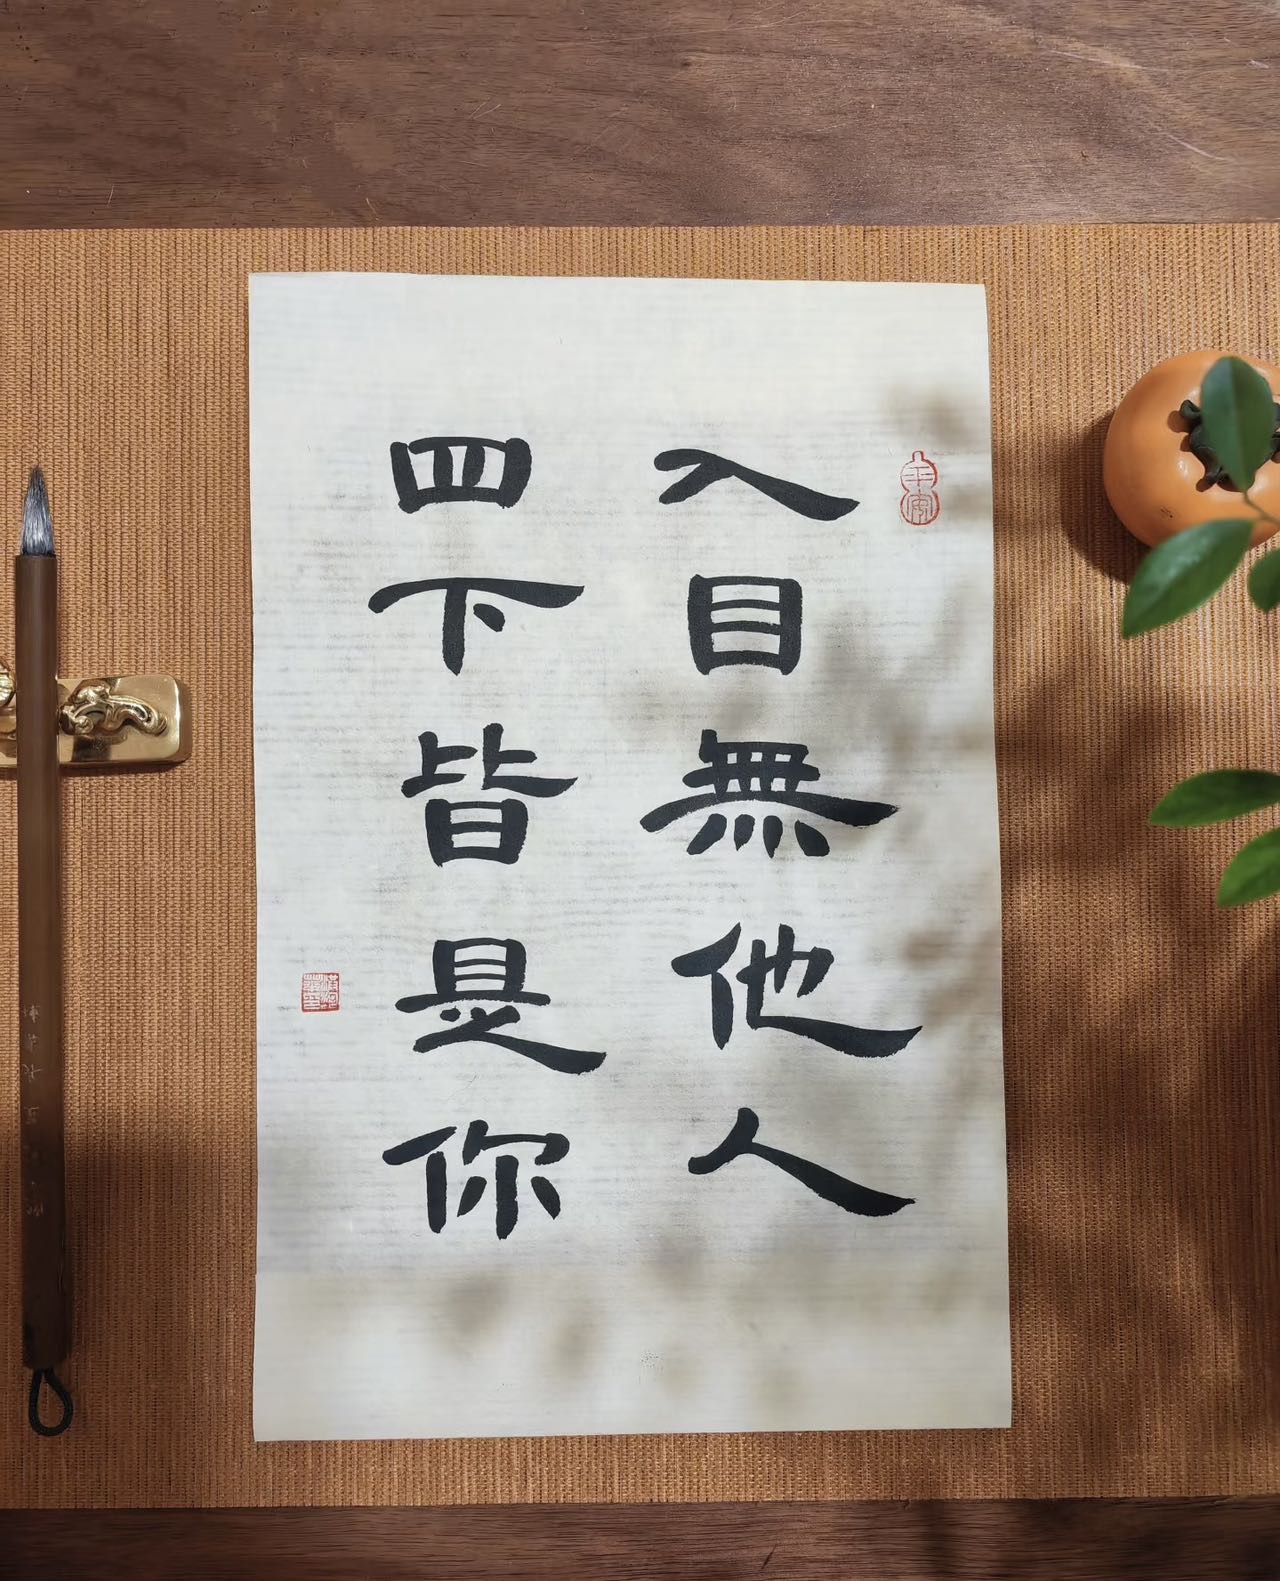 入目無他人
四下皆是你
平安